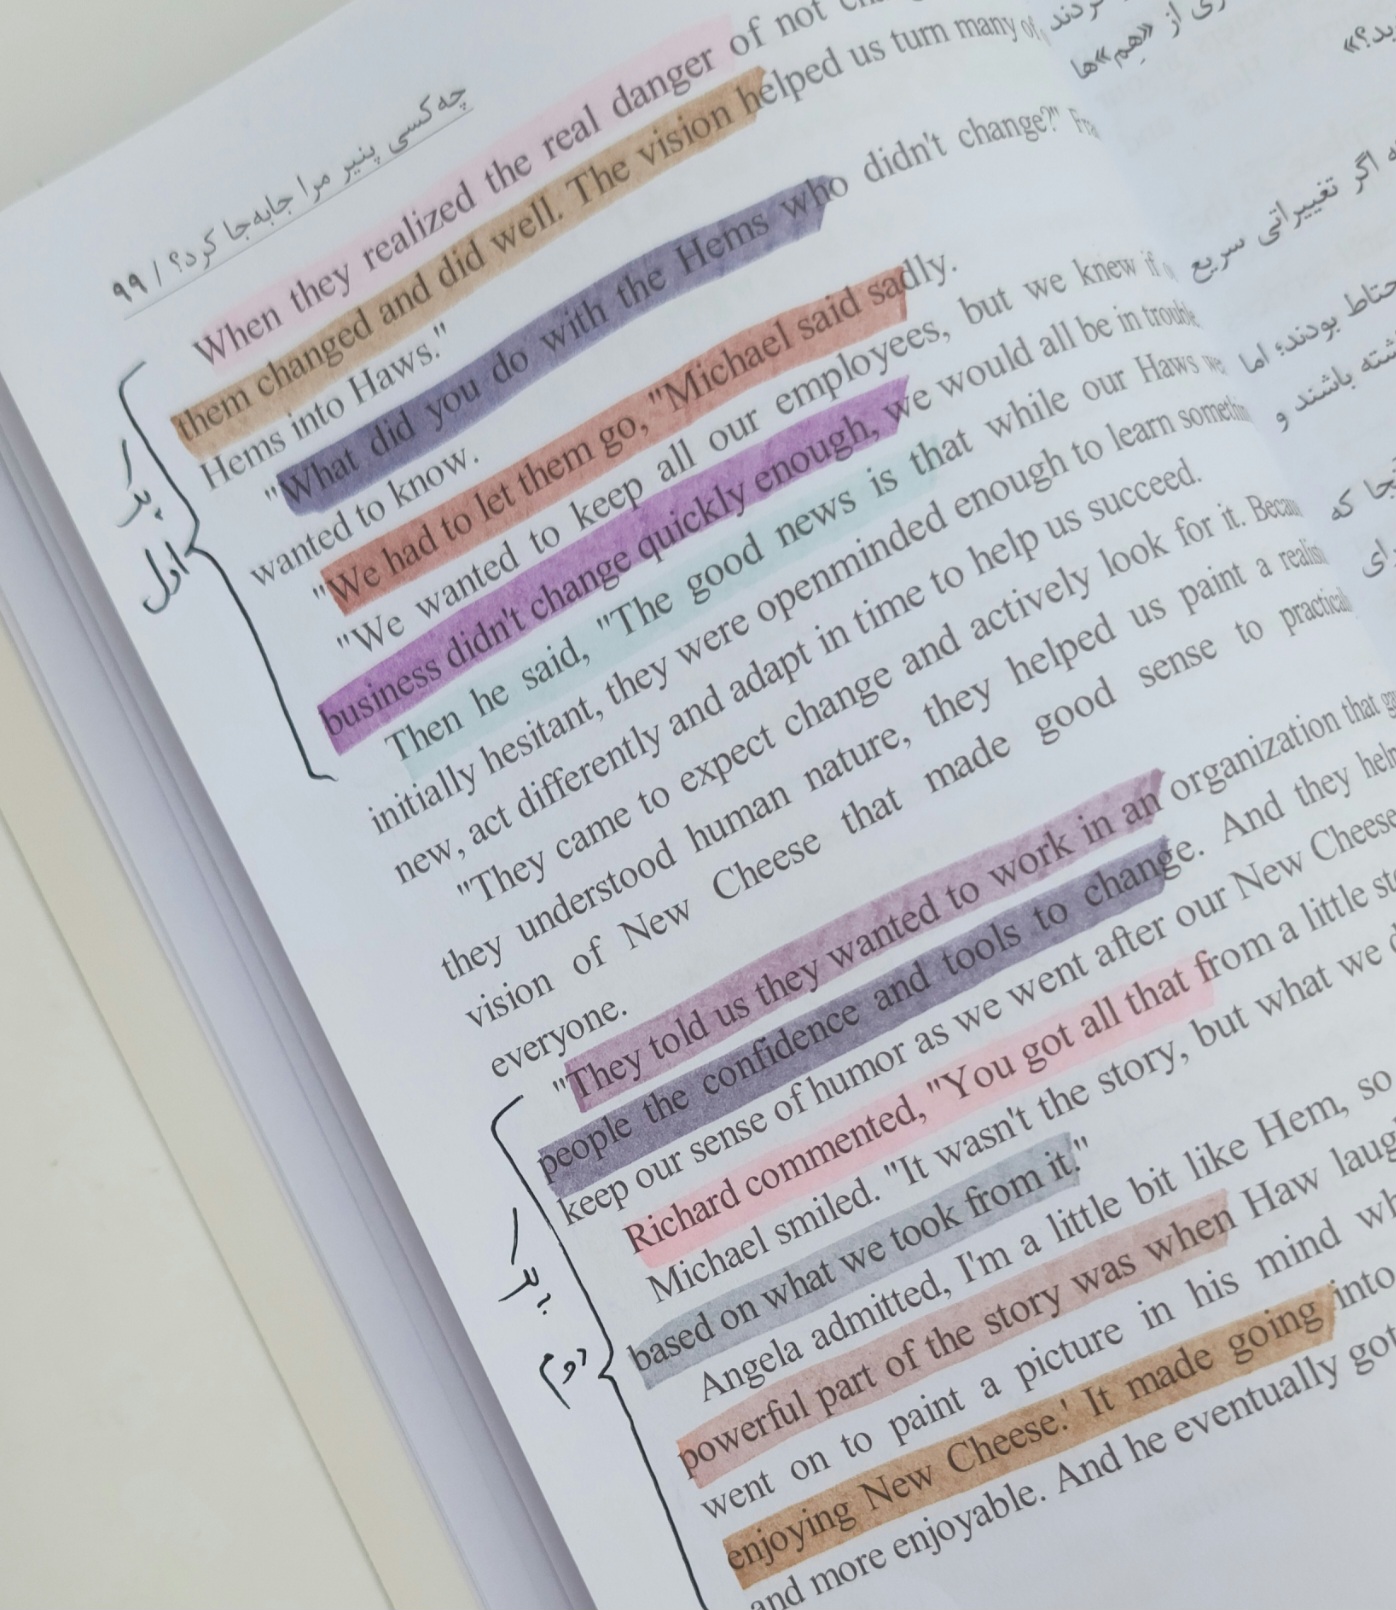 چه کسی پنیر مرا جابه‌جا کرد؟ / ۹۹
When they realized the real danger of not
them changed and did well. The vision helped us turn many of
Hems into Haws."
"What did you do with the Hems who didn't change?"
wanted to know.
"We had to let them go, "Michael said sadly.
"We wanted to keep all our employees, but we knew if
business didn't change quickly enough, we would all be in trouble
Then he said, "The good news is that while our Haws
initially hesitant, they were openminded enough to learn
new, act differently and adapt in time to help us succeed.
"They came to expect change and actively look for it.
they understood human nature, they helped us paint a
vision of New Cheese that made good sense to
everyone.
"They told us they wanted to work in an organization that
people the confidence and tools to change. And they
keep our sense of humor as we went after our New Cheese
Richard commented, "You got all that from a little
Michael smiled. "It wasn't the story, but what we
based on what we took from it."
Angela admitted, I'm a little bit like Hem, so
powerful part of the story was when Haw
went on to paint a picture in his mind
enjoying New Cheese.' It made going into
and more enjoyable. And he eventually got
اول
دوم
از «هِم»ها
اگر تغییراتی سریع
بودند؛ اما
باشند و
که